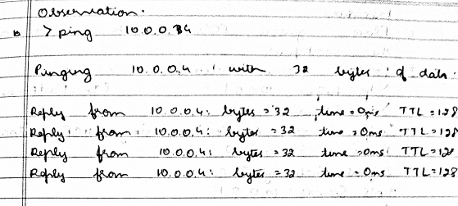 Observation.
> ping 10.0.0.4
Pinging 10.0.0.4 with 32 bytes of data:
Reply from 10.0.0.4: bytes=32 time=0ms TTL=128
Reply from 10.0.0.4: bytes=32 time=0ms TTL=128
Reply from 10.0.0.4: bytes=32 time=0ms TTL=128
Reply from 10.0.0.4: bytes=32 time=0ms TTL=128